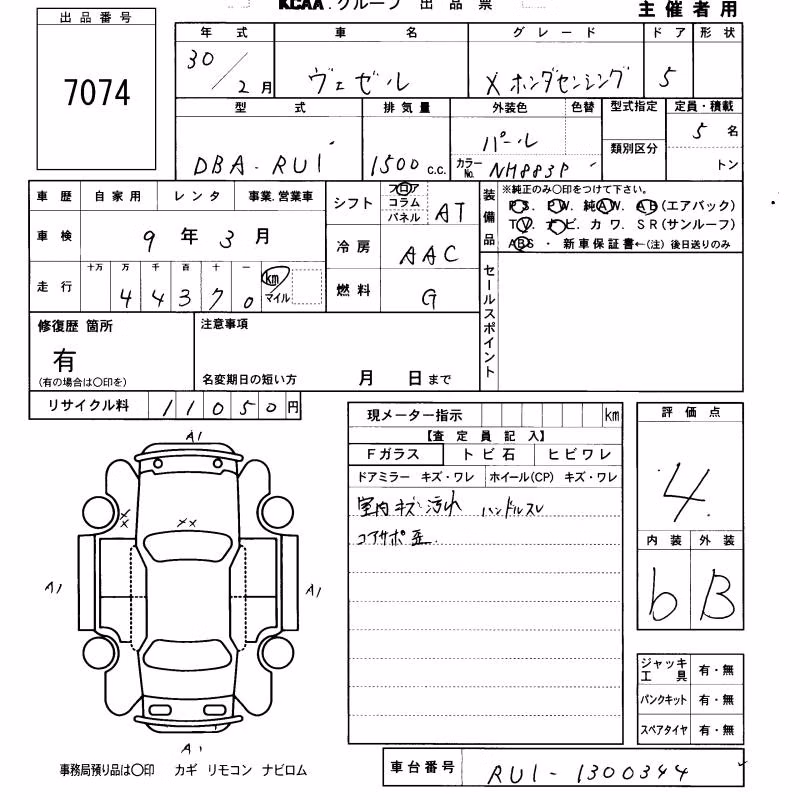 KCAA.グループ 出品票
主催者用
出品番号
7074
年式 車名 グレード ドア 形状
30/2月 ヴェゼル Xホンダセンシング 5
型式 排気量 外装色 色替 型式指定 定員・積載
DBA-RU1 1500 c.c. パール 類別区分 5名
カラーNo. NH883P トン
車歴 自家用 レンタ 事業.営業車
車検 9年3月
走行 十万 万 千 百 十 一
44370 km マイル
シフト フロア コラム パネル AT
冷房 AAC
燃料 G
装備品 ※純正のみ〇印をつけて下さい。
PS. PW. 純AW. AB(エアバック)
TV. ナビ. カワ. SR(サンルーフ)
ABS ・ 新車保証書←(注)後日送りのみ
セールスポイント
修復歴 箇所
有
(有の場合は〇印を)
注意事項
名変期日の短い方 月 日まで
リサイクル料 11050円
現メーター指示 km
【査定員記入】
Fガラス トビ石 ヒビワレ
ドアミラー キズ・ワレ ホイール(CP) キズ・ワレ
室内キズ汚れ ハンドルスレ
コアサポ歪
評価点
4
内装 外装
b B
A1
XX
XX
A1
A1
A1
ジャッキ工具 有・無
パンクキット 有・無
スペアタイヤ 有・無
事務局預り品は〇印 カギ リモコン ナビロム
車台番号 RU1-1300344